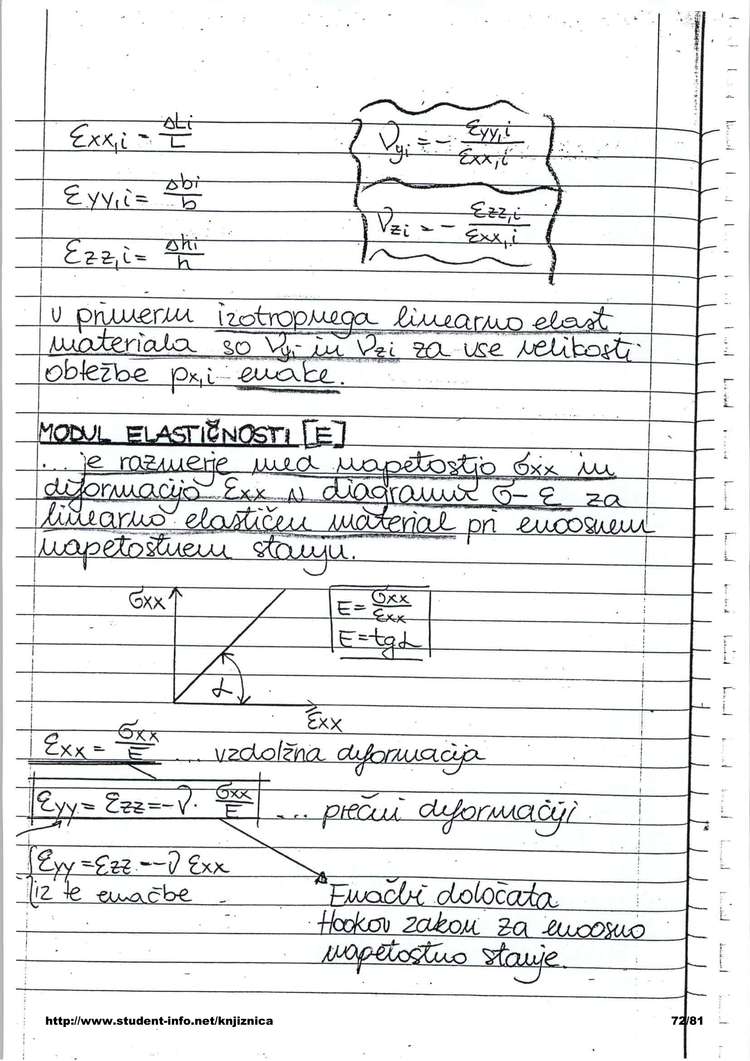 εxx,i = ΔLi/L
νyi = - εyy,i/εxx,i
εyy,i = Δbi/b
νzi = - εzz,i/εxx,i
εzz,i = Δhi/h
v primeru izotropnega linearno elast.
materiala so νyi in νzi za vse velikosti
obtežbe px,i enake.
MODUL ELASTIČNOSTI [E]
... je razmerje med napetostjo σxx in
deformacijo εxx v diagramu σ-ε za
linearno elastičen material pri enoosnem
napetostnem stanju.
σxx
E = σxx/εxx
E = tgα
α
εxx
εxx = σxx/E ... vzdolžna deformacija
εyy = εzz = -ν · σxx/E ... prečni deformaciji
εyy = εzz = -ν εxx
iz te enačbe
Enačbi določata
Hookov zakon za enoosno
napetostno stanje.
http://www.student-info.net/knjiznica
72/81